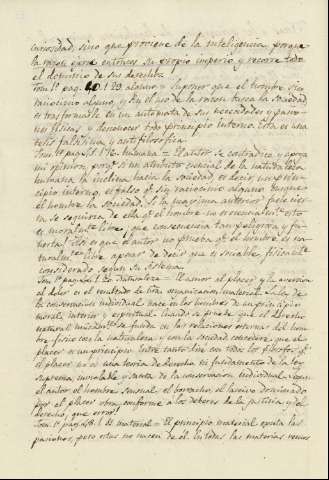 curiosidad, sino que proviene de la inteligencia, porque
la razon ejerce entonces su propio imperio y recorre todo
el dominio de sus
Tom. 1º pag. 40. l 29. alguno = Suponer que el hombre sin
raciocinio alguno, y sin el uso de la razon busca la sociedad
es trasformarle en un automata de sus necesidades y
y desconocer todo principio interno. Esta es una
falsisima y antifilosofica.
Tom. 1º pag. l 12. humana = El autor se contradice y apoya
mi opinion, porqe. si un atributo esencial de la naturaleza
humana, la inclina hacia la sociedad, es decir, un prin-
cipio interno, es falso qe. sin raciocinio alguno busque
el hombre la sociedad. Si la anterior fuese cier-
ta se seguiria de ella qe. el hombre no es
es libre, que consecuencia tan peligrosa y fu-
nesta! esto es que el autor no prueba qe. el hombre es na-
turalmte. libre apesar de decir que es
considerado segun su sistema.
Tom. 1º pag. l 20 naturaleza = El amor al placer y la aversion
al dolor es el resultado de la organizacion material. La de
la conservacion individual nace en los hombres de un principio
moral, interior y espiritual. Cuando se pruebe que el Derecho
natural se funda en las relaciones externas del hom-
bre fisico con la naturaleza y con la sociedad concedere, que el
placer es un principio. Entre tanto dire con todos los filosofos qe.
el placer no es una teoria de derecho ni fundamento de la ley
suprema, inviolable y santa de la conservacion individual. Segun
el autor el hombre sensual, el borracho, el lascivo dominado
por el placer obra conforme a los deberes de la justicia y del
derecho, que error!
Tom. 1º pag. 48. l. material = El principio material excita las
pasiones, pero estas no nacen de él. En todas las materias vemos